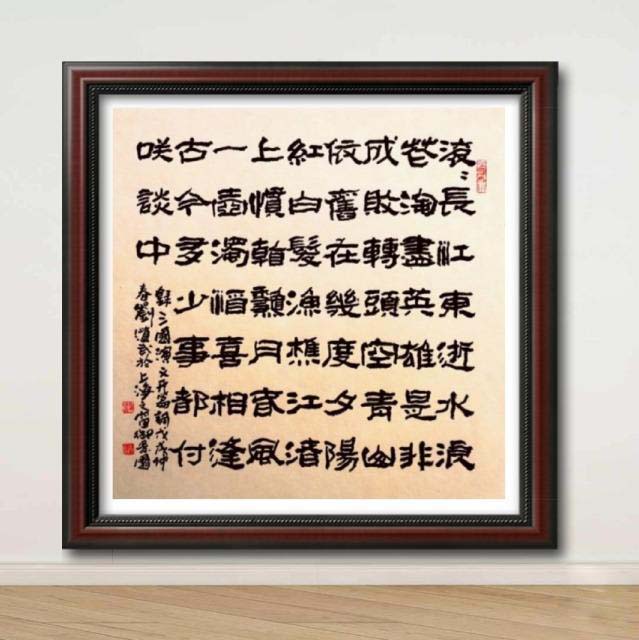 滚〻長江東逝水浪
花淘盡英雄是非
成敗轉頭空青山
依舊在幾度夕陽
紅白髮漁樵江渚
上慣看秋月春風
一壺濁酒喜相逢
古今多少事都付
咲談中
録三國演义开篇詞戊戌仲
春劉於上海之御景園